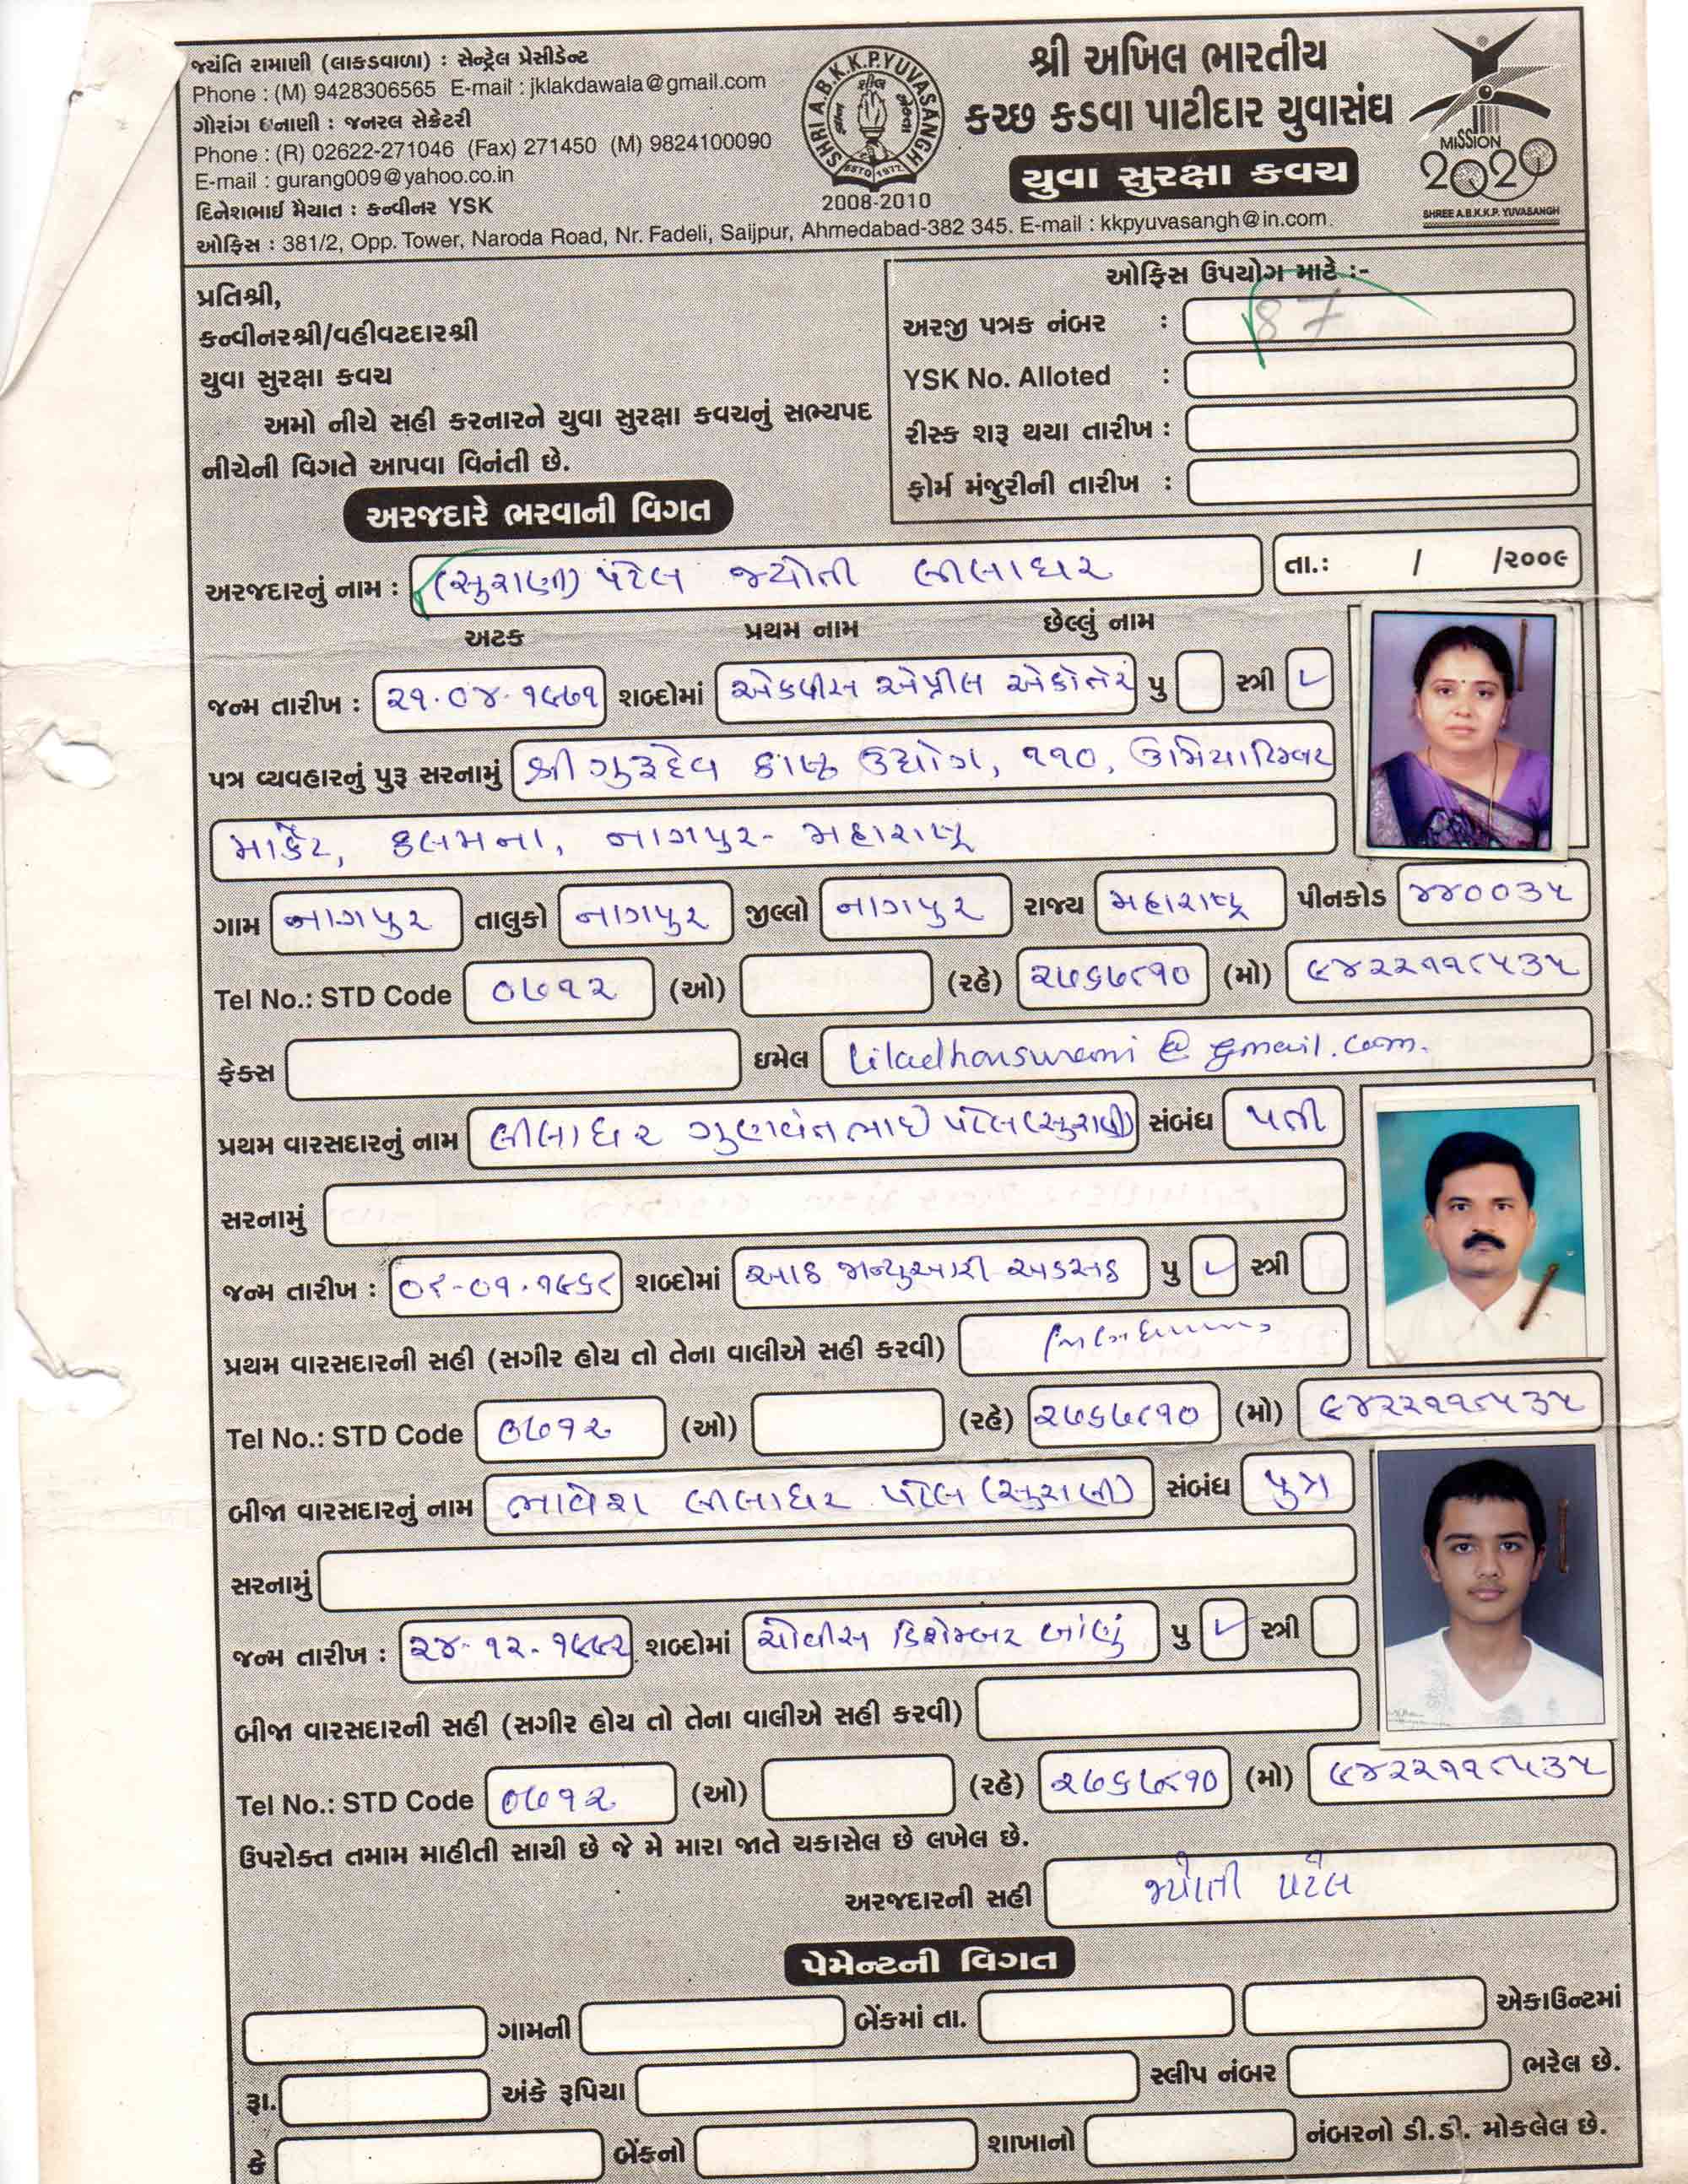 જયંતિ રામાણી (લાકડાવાળા) : સેન્ટ્રેલ પ્રેસીડેન્ટ
Phone : (M) 9428306565 E-mail : jklakdawala@gmail.com
ગૌરાંગ ધનાણી : જનરલ સેક્રેટરી
Phone : (R) 02622-271046 (Fax) 271450 (M) 9824100090
E-mail : gurang009@yahoo.co.in
દિનેશભાઈ મૈયાત : કન્વીનર YSK
SHRI A.B.K.K.P.YUVASANGH
ESTD 1977
2008-2010
શ્રી અખિલ ભારતીય
કચ્છ કડવા પાટીદાર યુવાસંઘ
યુવા સુરક્ષા કવચ
MISSION
2020
SHREE A.B.K.K.P. YUVASANGH
ઓફિસ : 381/2, Opp. Tower, Naroda Road, Nr. Fadeli, Saijpur, Ahmedabad-382 345. E-mail : kkpyuvasangh@in.com.
પ્રતિશ્રી,
કન્વીનરશ્રી/વહીવટદારશ્રી
યુવા સુરક્ષા કવચ
અમો નીચે સહી કરનારને યુવા સુરક્ષા કવચનું સભ્યપદ
નીચેની વિગતે આપવા વિનંતી છે.
ઓફિસ ઉપયોગ માટે :-
અરજી પત્રક નંબર : 87
YSK No. Alloted :
રીસ્ક શરૂ થયા તારીખ :
ફોર્મ મંજુરીની તારીખ :
અરજદારે ભરવાની વિગત
અરજદારનું નામ : (સુરાણી) પટેલ જ્યોતી લીલાધર તા.: / /૨૦૦૯
અટક પ્રથમ નામ છેલ્લું નામ
જન્મ તારીખ : ૨૧.૦૪.૧૯૭૧ શબ્દોમાં એકવીસ એપ્રીલ એકોતેર પુ સ્ત્રી ✓
પત્ર વ્યવહારનું પુરૂ સરનામું શ્રી ગુરૂદેવ કાષ્ઠ ઉદ્યોગ, ૧૧૦, ઉમિયા ટિમ્બર
માર્કેટ, કલમના, નાગપુર- મહારાષ્ટ્ર
ગામ નાગપુર તાલુકો નાગપુર જીલ્લો નાગપુર રાજ્ય મહારાષ્ટ્ર પીનકોડ ૪૪૦૦૩૫
Tel No.: STD Code ૦૭૧૨ (ઓ) (રહે) ૨૭૬૭૮૧૦ (મો) ૯૪૨૨૧૧૮૫૩૫
ફેક્સ ઇમેલ liladharsurani@gmail.com.
પ્રથમ વારસદારનું નામ લીલાધર ગુણવંતભાઈ પટેલ (સુરાણી) સંબંધ પતી
સરનામું
જન્મ તારીખ : ૦૮-૦૧.૧૯૬૮ શબ્દોમાં આઠ જાન્યુઆરી અડસઠ પુ ✓ સ્ત્રી
પ્રથમ વારસદારની સહી (સગીર હોય તો તેના વાલીએ સહી કરવી)
Tel No.: STD Code ૦૭૧૨ (ઓ) (રહે) ૨૭૬૭૮૧૦ (મો) ૯૪૨૨૧૧૮૫૩૫
બીજા વારસદારનું નામ ભાવેશ લીલાધર પટેલ (સુરાણી) સંબંધ પુત્ર
સરનામું
જન્મ તારીખ : ૨૪-૧૨-૧૯૯૨ શબ્દોમાં ચોવીસ ડિશેમ્બર બાંણું પુ ✓ સ્ત્રી
બીજા વારસદારની સહી (સગીર હોય તો તેના વાલીએ સહી કરવી)
Tel No.: STD Code ૦૭૧૨ (ઓ) (રહે) ૨૭૬૭૮૧૦ (મો) ૯૪૨૨૧૧૮૫૩૫
ઉપરોક્ત તમામ માહીતી સાચી છે જે મે મારા જાતે ચકાસેલ છે લખેલ છે.
અરજદારની સહી જ્યોતી પટેલ
પેમેન્ટની વિગત
ગામની બેંકમાં તા. એકાઉન્ટમાં
રૂા. અંકે રૂપિયા સ્લીપ નંબર ભરેલ છે.
કે બેંકનો શાખાનો નંબરનો ડી.ડી. મોકલેલ છે.